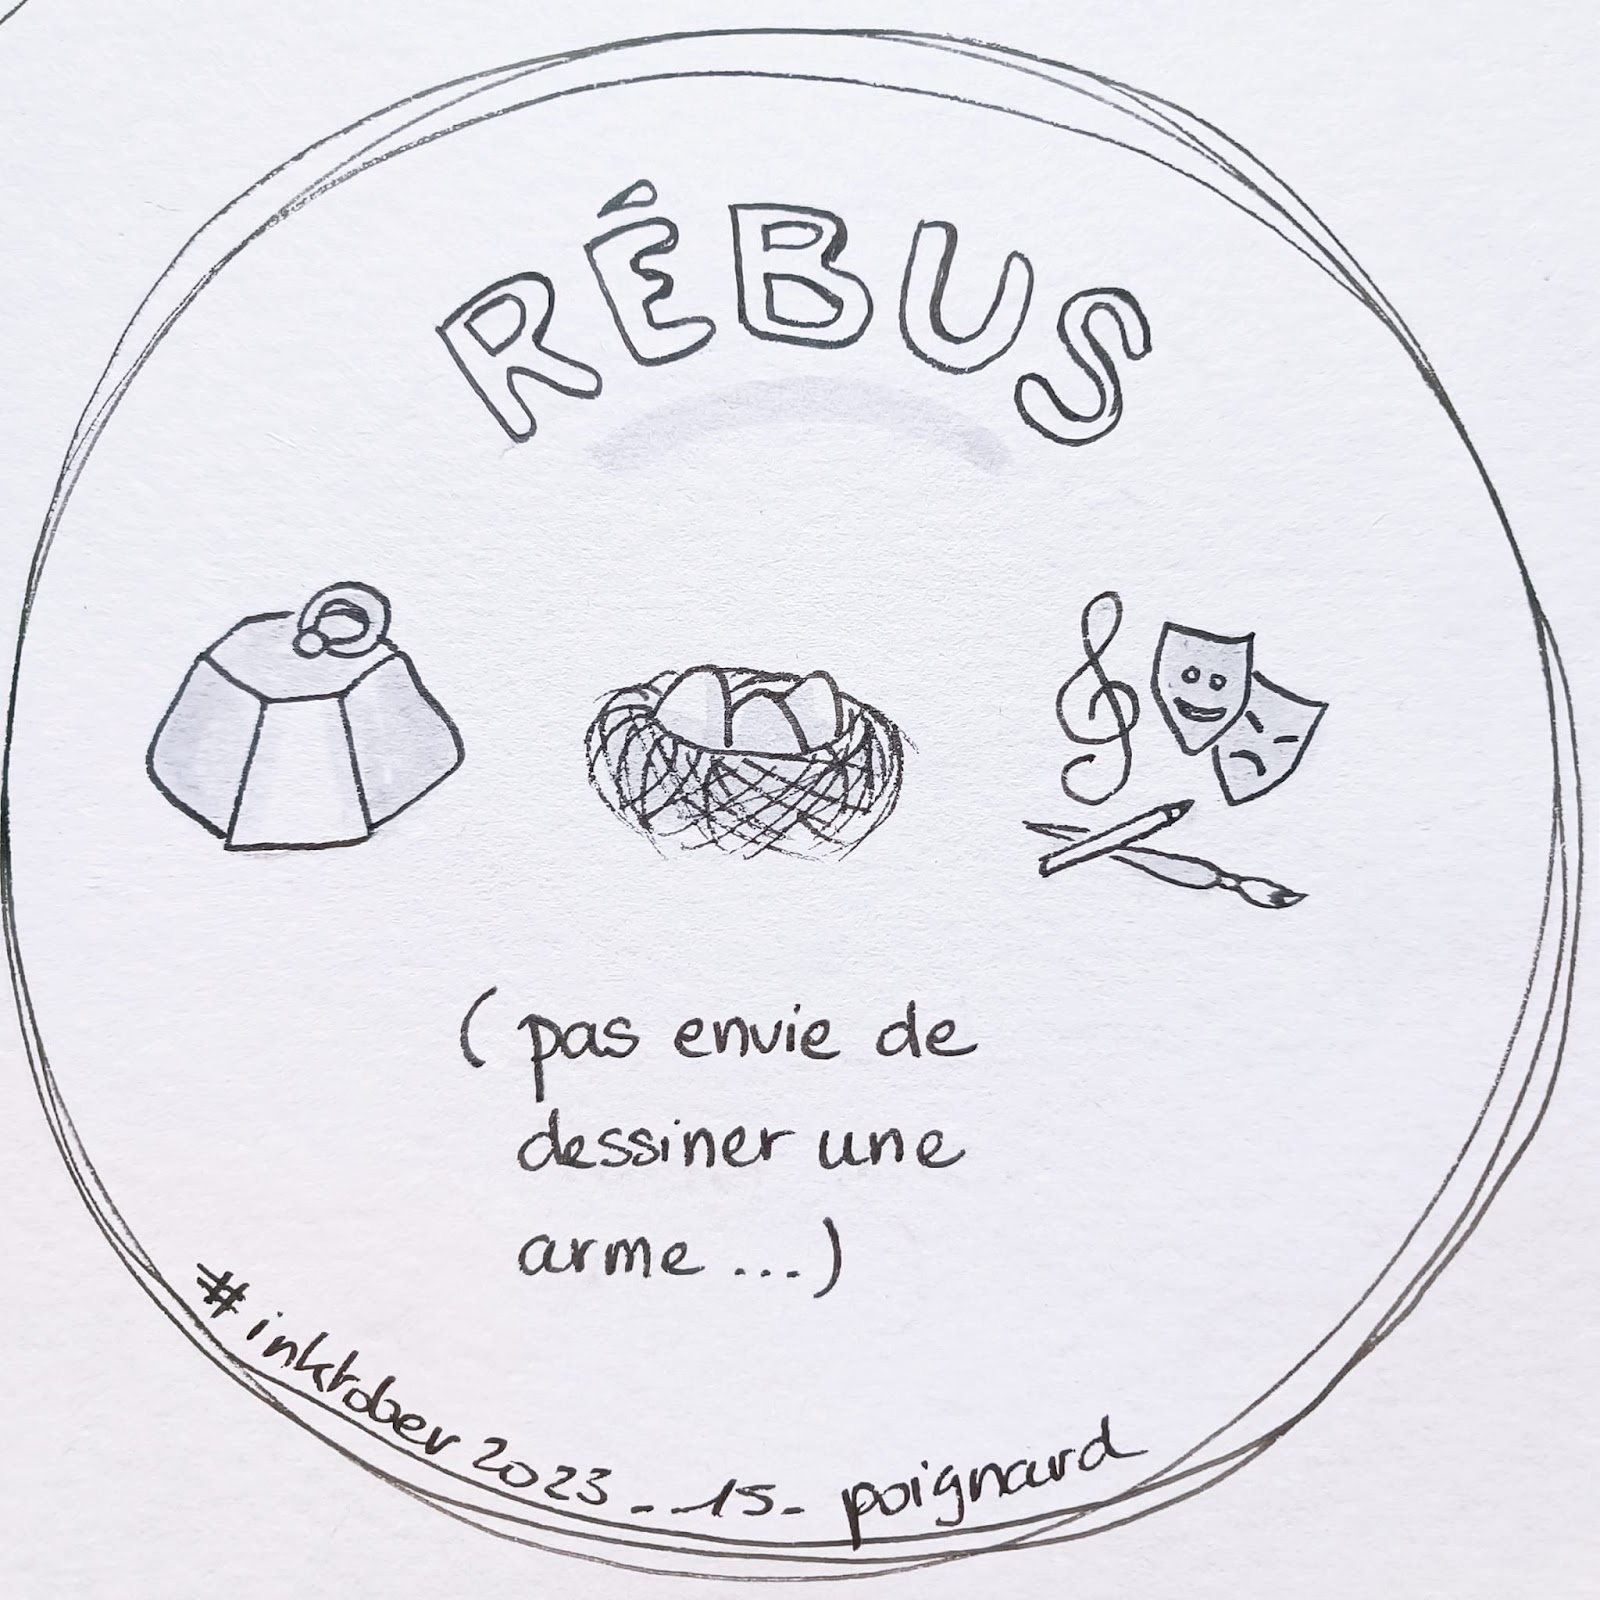 RÉBUS
(pas envie de
dessiner une
arme...)
#inktober 2023 - 15 - poignard